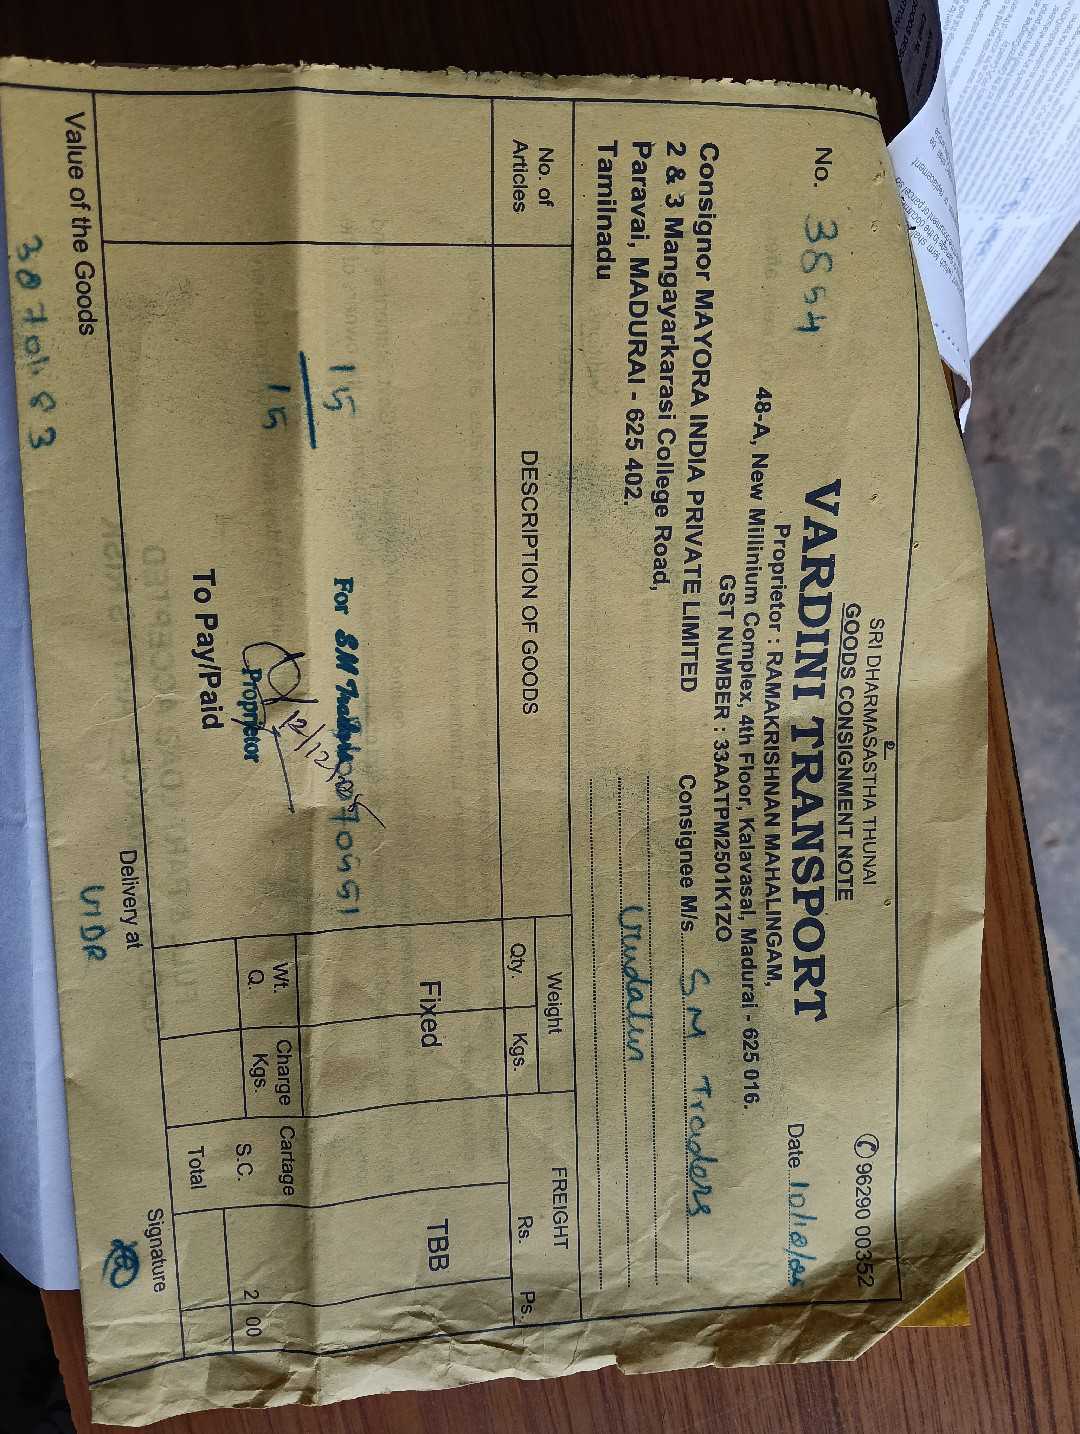 SRI DHARMASASTHA THUNAI
GOODS CONSIGNMENT NOTE
✆ 96290 00352
VARDINI TRANSPORT
No. 3854
Proprietor : RAMAKRISHNAN MAHALINGAM,
Date
48-A, New Millinium Complex, 4th Floor, Kalavasal, Madurai - 625 016.
GST NUMBER : 33AATPM2501K1ZO
Consignor MAYORA INDIA PRIVATE LIMITED
2 & 3 Mangayarkarasi College Road,
Paravai, MADURAI - 625 402.
Tamilnadu
Consignee M/s. SM Traders
No. of Articles
DESCRIPTION OF GOODS
Weight
Qty. Kgs.
FREIGHT
Rs. Ps.
Fixed
TBB
15
15
For SM Traders
Proprietor
To Pay/Paid
Wt. Q.
Charge Kgs.
Cartage
S.C. 2 00
Total
Value of the Goods
Delivery at
Signature
VIDR